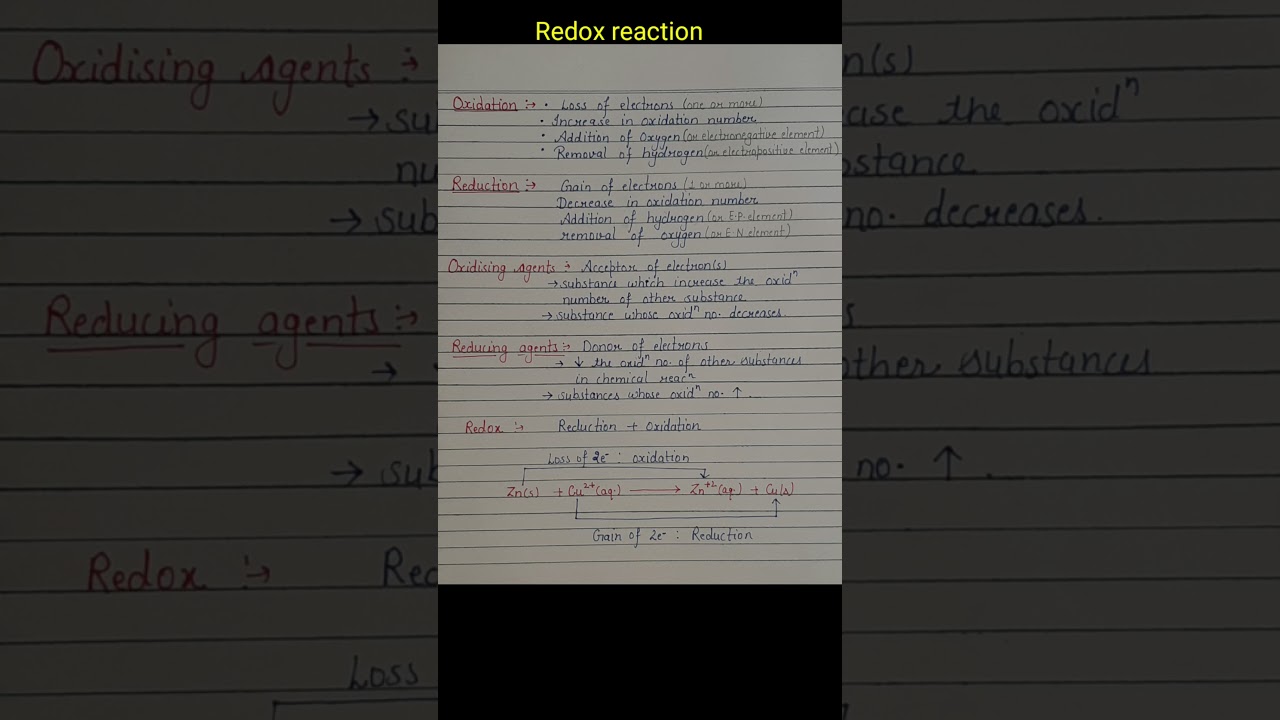 Redox reaction
Oxidation :→ • Loss of electrons (one or more)
• Increase in oxidation number
• Addition of Oxygen (or electronegative element)
• Removal of hydrogen (or electropositive element)
Reduction :→ Gain of electrons (1 or more)
Decrease in oxidation number
Addition of hydrogen (or E.P. element)
removal of oxygen (or E.N element)
Oxidising agents :→ Acceptor of electron(s)
→ substance which increase the oxidⁿ
number of other substance
→ substance whose oxidⁿ no. decreases.
Reducing agents :→ Donor of electrons
→ ↓ the oxidⁿ no. of other substances
in chemical reacⁿ
→ substances whose oxidⁿ no. ↑.
Redox :→ Reduction + Oxidation
Loss of 2e⁻ : oxidation
Zn(s) + Cu²⁺(aq.) → Zn⁺²(aq.) + Cu(s)
Gain of 2e⁻ : Reduction
Oxidising agents :→
→ su
nu
→ sub
Reducing agents :→
→
→ sub
Redox :→ Red
Loss
n(s)
ase the oxidⁿ
bstance
no. decreases.
s
other substances
no. ↑.